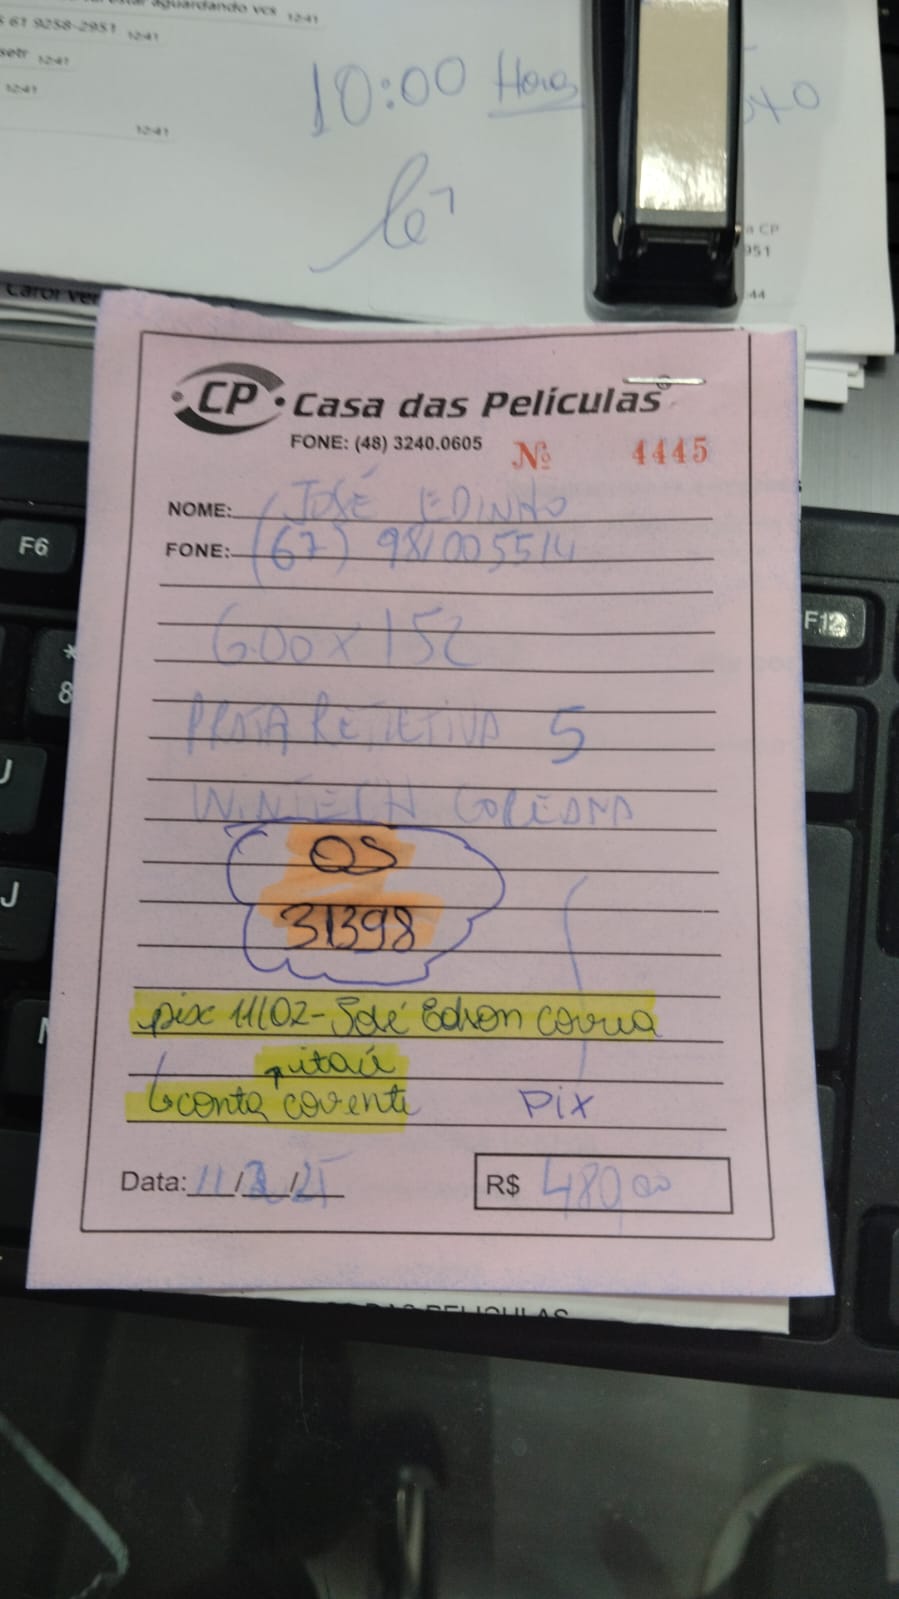 estar aguardando vcs 12:41
61 9258-2951 12:41
setr 12:41
12:41
12:41
10:00 Horas
a CP
951
:44
Carol Ver
CP Casa das Películas
FONE: (48) 3240.0605 Nº 4445
NOME: JOSÉ EDINHO
FONE: (67) 981005514
6.00 x 152
PRATA REFLETIVA 5
WINTECH COREANA
OS
31398
pix 11/02 - José Edson correa
itaú
conta corrente
Pix
Data: 11/2/25 R$ 480,00
DAS PELICULAS
F6
F12
*
8
J
J